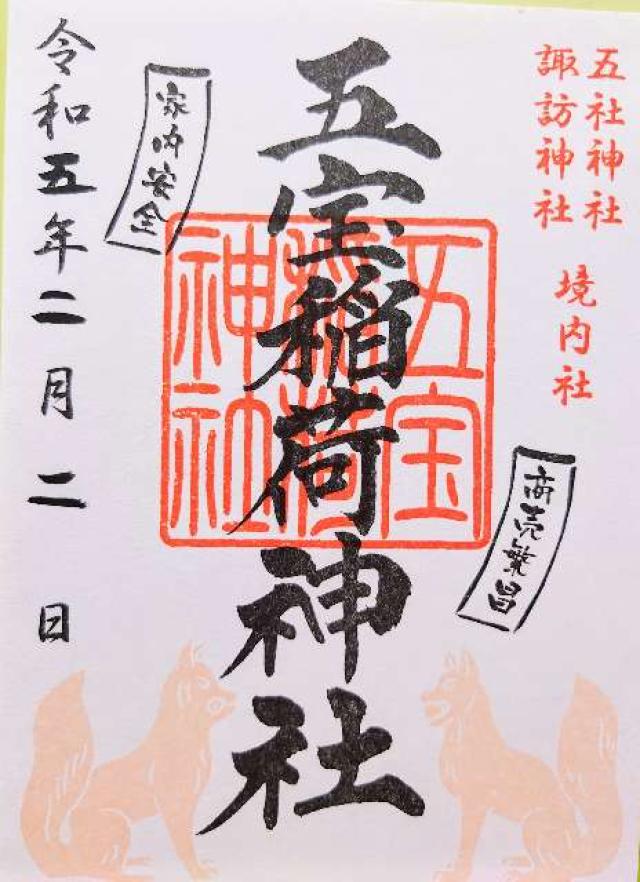 五社神社
諏訪神社
境内社
商売繁昌
五宝稲荷神社
五宝
稲荷
神社
家内安全
令和五年二月二日